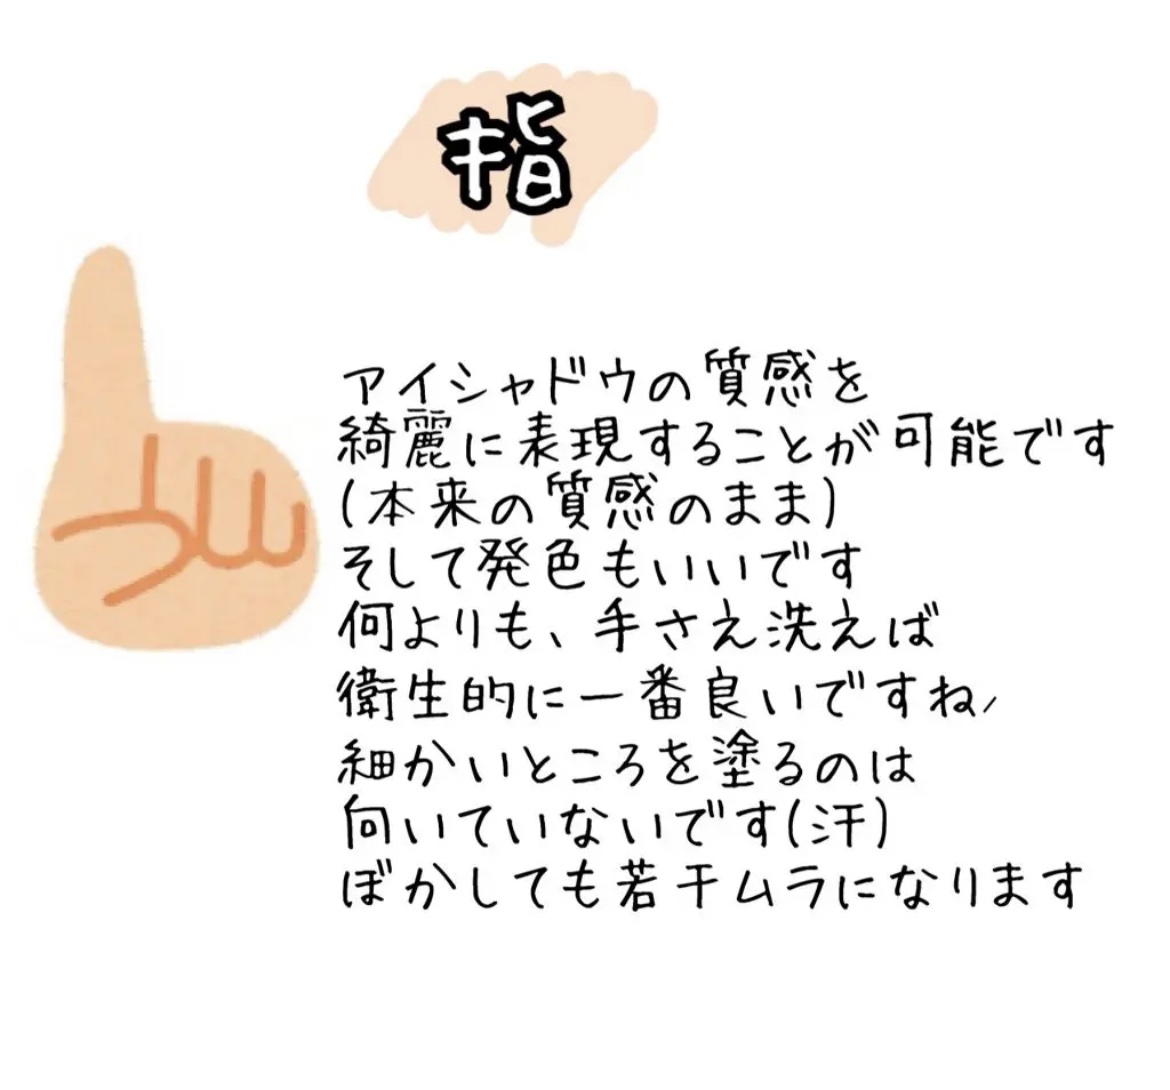 指
アイシャドウの質感を
綺麗に表現することが可能です
(本来の質感のまま)
そして発色もいいです
何よりも、手さえ洗えば
衛生的に一番良いですね
細かいところを塗るのは
向いていないです(汗)
ぼかしても若干ムラになります